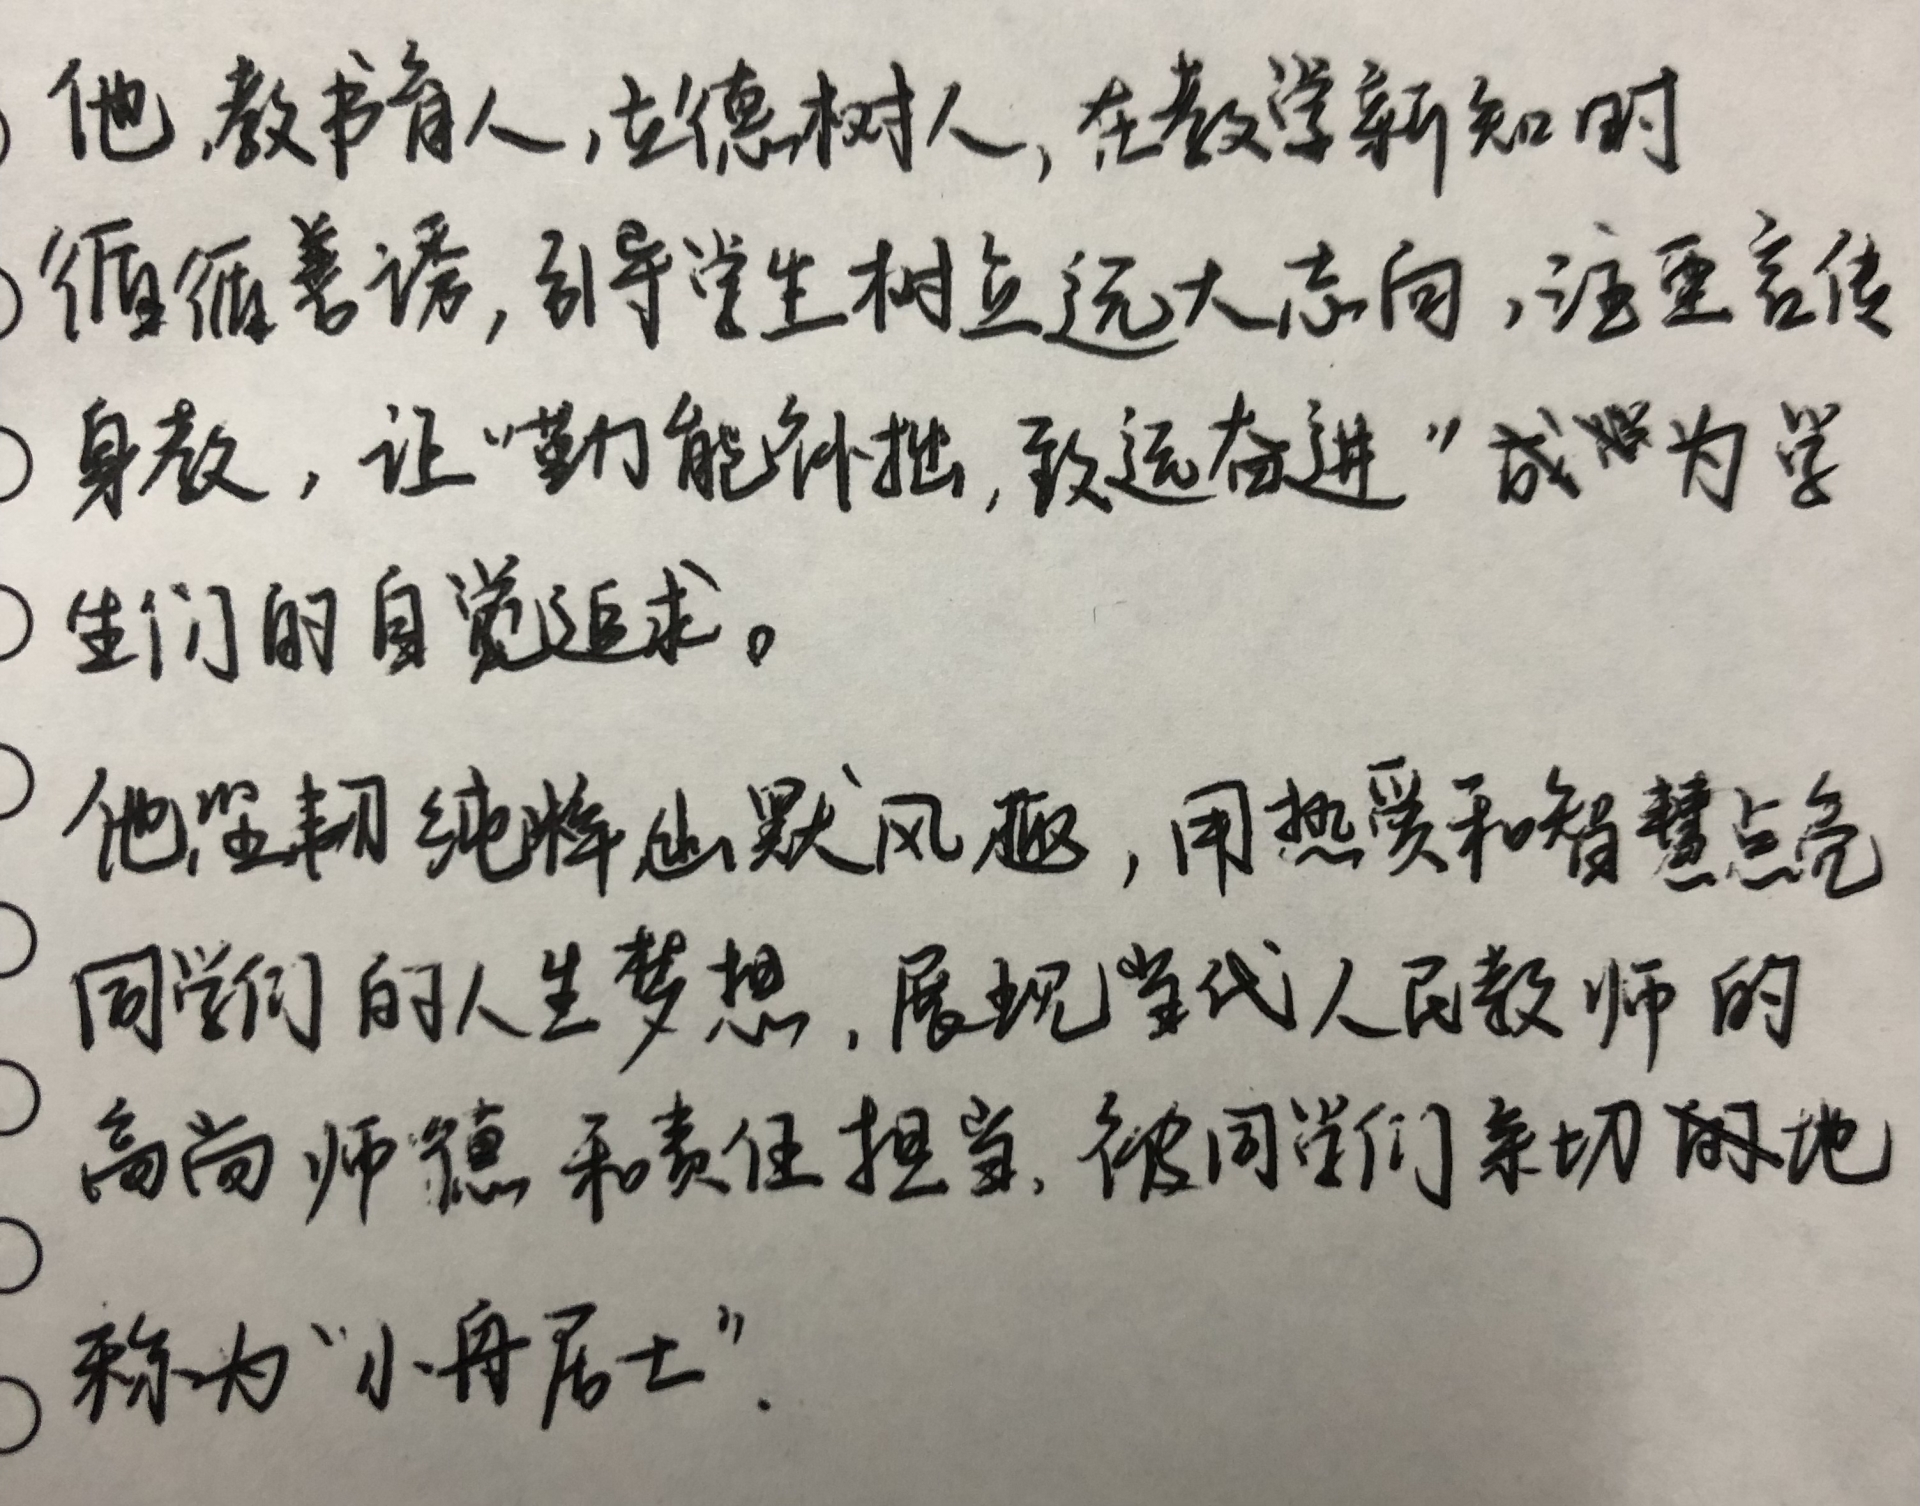 他,教书育人,立德树人,在教学新知时
循循善诱,引导学生树立远大志向,注重言传
身教,让“勤能补拙,致远奋进”成为学
生们的自觉追求。
他坚韧纯粹幽默风趣,用热爱和智慧点亮
同学们的人生梦想,展现当代人民教师的
高尚师德和责任担当,被同学们亲切地
称为“小舟居士”.